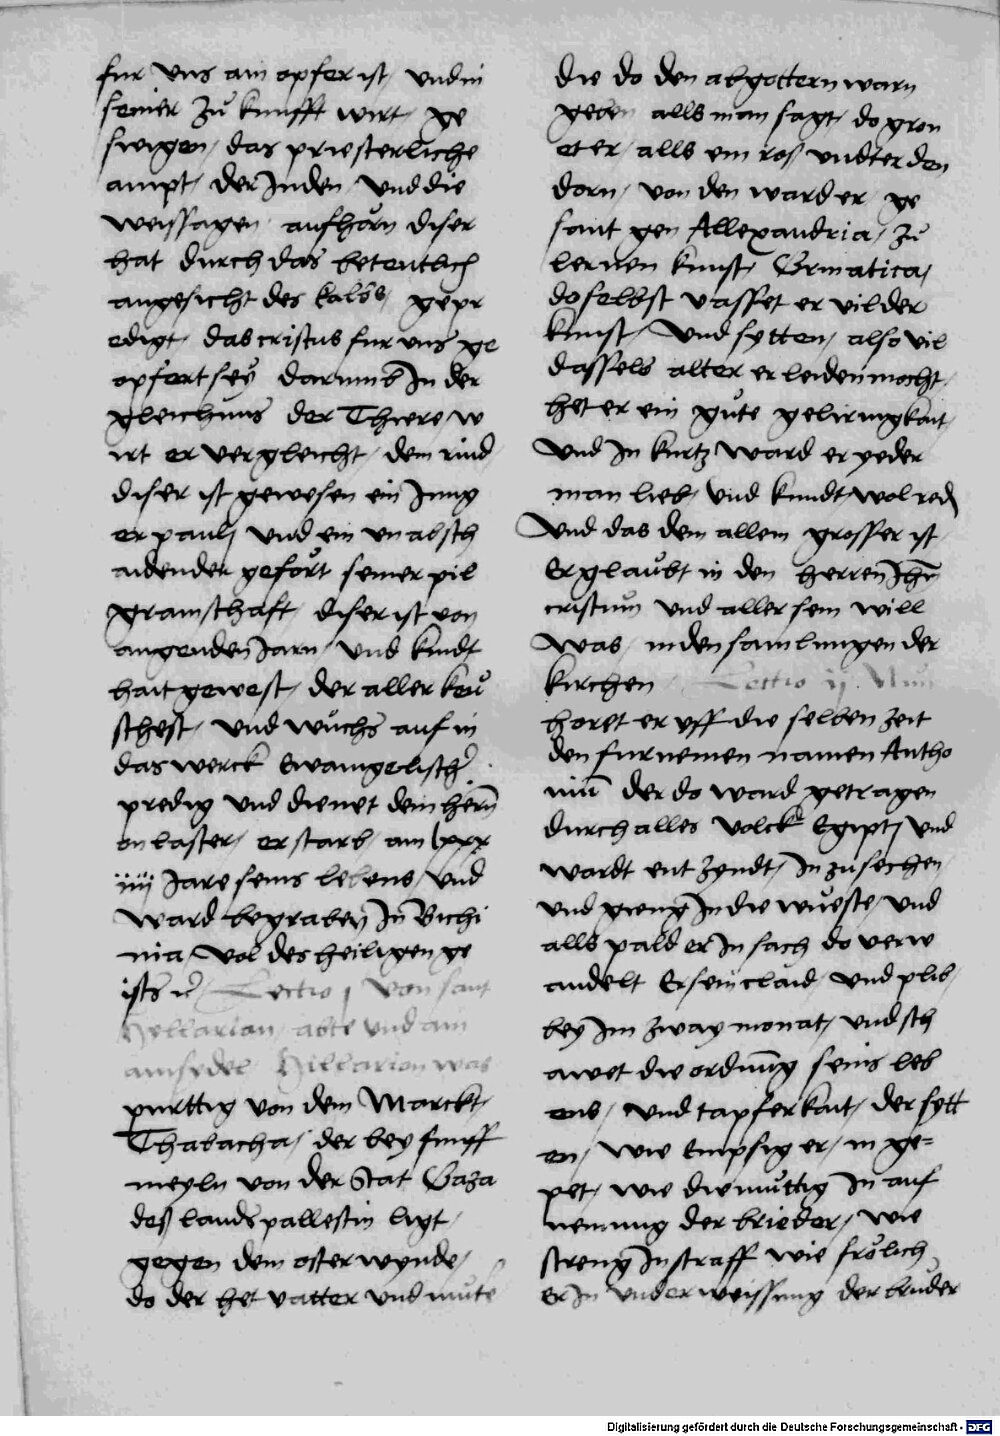 fur vns am opfer ist / vnd in
seiner zů kunfft wirt / ge
swigen / das priesterliche
ampt / der Juden / vnd die
weissagen / aufhörn diser
hat durch das betentlich
angesicht des kalbs / gepr
edigt / das cristus fur vns ge
opfert sey darumb In der
gleichnus der Thiere / w
irt er vergleicht / dem rind /
diser ist gewesen ein Jung
er pauli vnd ein vnabsch
aidender gefört seiner pil
gramschaft / diser ist von
angenden Jarn / vnd kindt
hait gewest / der aller keů
schest / vnd wůchs auf in
das werck Ewangelischer
predig vnd dienet dem hern
on laster / er starb / am lxxx
iiij Jare seins lebens / vnd
ward begraben In Bichi
nia / vol des heiligen ge
ists Lectio j von sant
Hyllarian / abte vnd ain
ainsydel Hillarion was
purttig von dem Marckt /
Thabacha / der bey funff
meyln von der Stat Gaza
deß lands pallestin ligt /
gegen dem osterwynde /
do der het vatter vnd mute
die do den abgottern warn
geben alls man sagt / do gron
et er / alls ein roß vndter den
dorn / von den ward er / ge
sant gen Allexandria / zů
lernen kunst / Grmatica /
doselbst vasset er vil der
kunst / Vnd sytten / also vil
dassels alter erleiden mocht /
het er ein gute gelirnugkait /
vnd In kurtz ward er yeder
man lieb / vnd kundt wol red
Vnd das dem allem grosser ist
Er glaubt in den herren Jhm
cristum vnd aller sein will
was / in den samlungen der
kirchen / Lectio ij Nun
horet er vff die selben zeit
den furnemen namen Antho
nium der do ward getragen
durch alles volck Egipt / vnd
wardt entzyndt / In zu sechen /
vnd gieng In die wueste / vnd
alls pald er In sach do verw
andelt Er sein claid / vnd plib /
bey Im zway monat / vnd sch
awet die ordnung seins leb
ens / vnd tapferkait / der sytt
en / wie Empsig er / in ge=
pet / wie diemuttig In auf
nemung der brieder / wie
streng In straff wie frölich
Er In vnderweissung der bruder